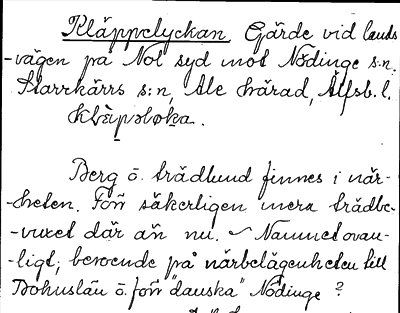 Kläppelyckan. Gärde vid lands
-vägen på Nol syd mot Nödinge s:n.
Starrkärrs s:n, Ale härad, Älfsb. l.
Berg o. trädlund finnes i när-
-heten. Förr säkerligen mera trädbe-
-vuxet där än nu. Namnet ovan-
-ligt, beroende på närbelägenheten till
Bohuslän o. förr "danska" Nödinge ?